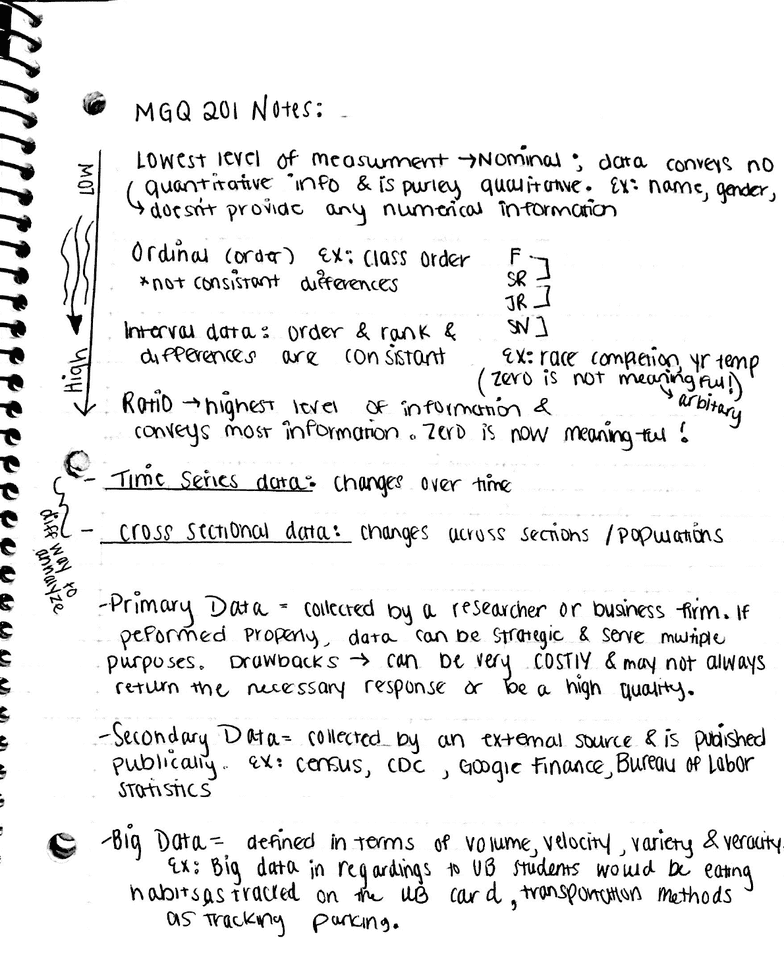 MGQ 201 Notes:
LOWEST level of measurment → Nominal; data conveys no
quantitative info & is purley qualitative. Ex: name, gender,
→ doesn't provide any numerical information
LOW
High
Ordinal (order) Ex: class order
*not consistant differences
F
SR
JR
SN
Interval data: order & rank &
differences are consistant
Ex: race completion, yr temp
(zero is not meaningful)
→ arbitary
Ratio → highest level of information &
conveys most information. Zero is now meaningful!
- Time Series data: changes over time
- cross sectional data: changes across sections / populations
diff way to
annalyze
-Primary Data = collected by a researcher or business firm. If
peformed properly, data can be strategic & serve multiple
purposes. Drawbacks → can be very COSTLY & may not always
return the necessary response or be a high quality.
-Secondary Data = collected by an external source & is published
publically. Ex: census, CDC, Google Finance, Bureau of Labor
Statistics
-Big Data = defined in terms of volume, velocity, variety & veracity.
Ex: Big data in regardings to UB students would be eating
habits as tracked on the UB card, transportation methods
as tracking parking.